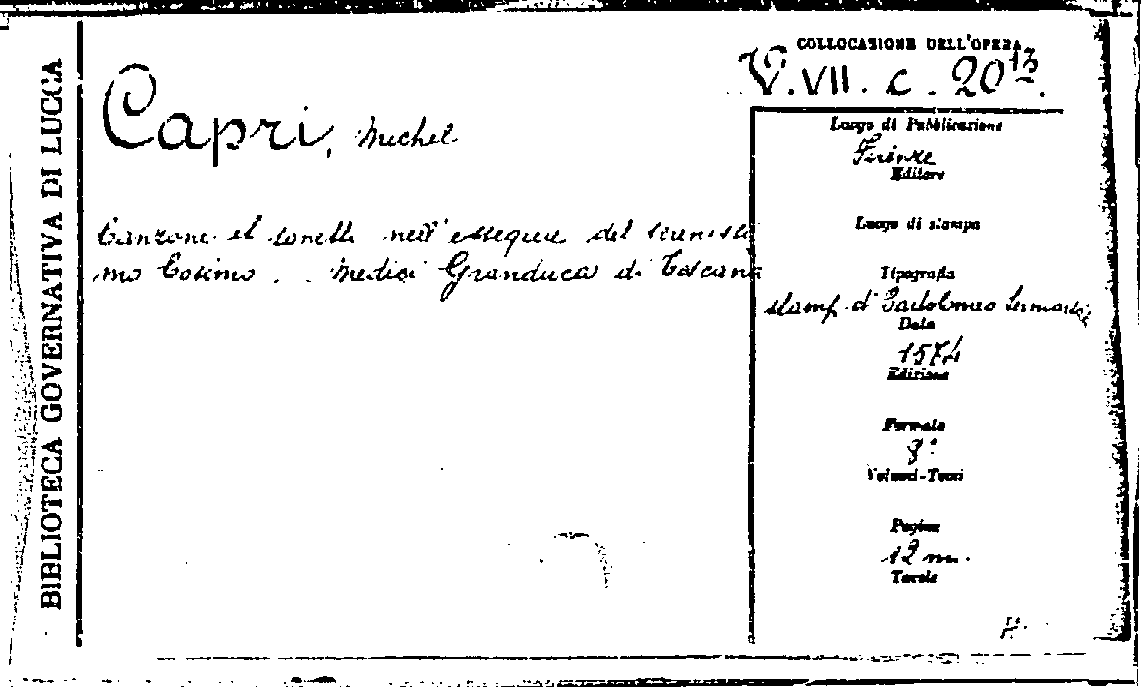 BIBLIOTECA GOVERNATIVA DI LUCCA
COLLOCAZIONE DELL'OPERA
V. VII. c. 20 13
Capri, Michel
Canzone et sonetti nell'essequie del serenissi
mo Cosimo . . Medici Granduca di Toscana
Luogo di Pubblicazione
Firenze
Editore
Luogo di stampa
Tipografia
stamp. di Bartolomeo Sermartelli
Data
1574
Edizione
Formato
8°
Volumi-Tomi
Pagine
12 nn.
Tavole
H.